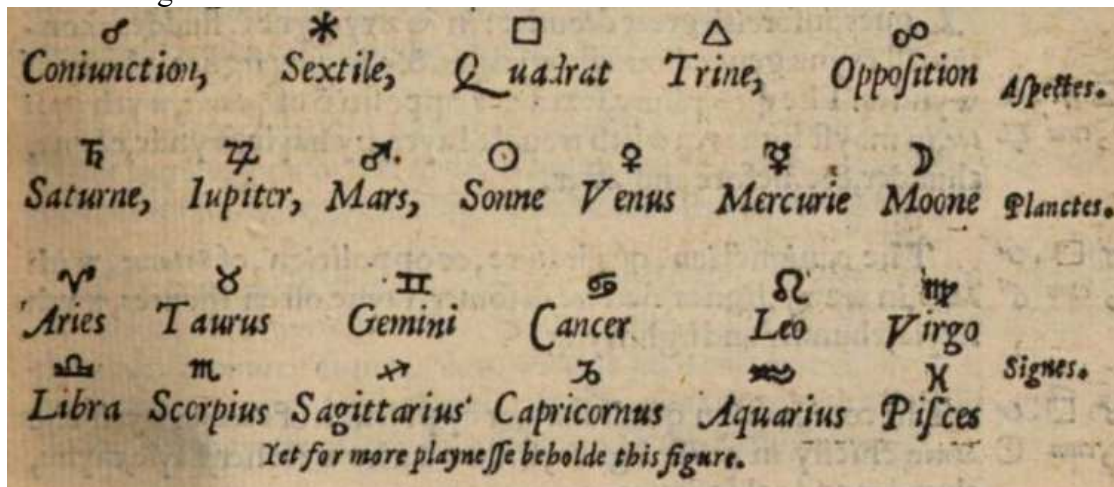 ☌ ⚹ □ △ ☍
Coniunction, Sextile, Quadrat Trine, Oppoſition Aſpectes.
♄ ♃ ♂ ☉ ♀ ☿ ☽
Saturne, Iupiter, Mars, Sonne Venus Mercurie Moone Planetes.
♈ ♉ ♊ ♋ ♌ ♍
Aries Taurus Gemini Cancer Leo Virgo
♎ ♏ ♐ ♑ ♒ ♓ Signes.
Libra Scorpius Sagittarius Capricornus Aquarius Piſces
Yet for more playneſſe beholde this figure.